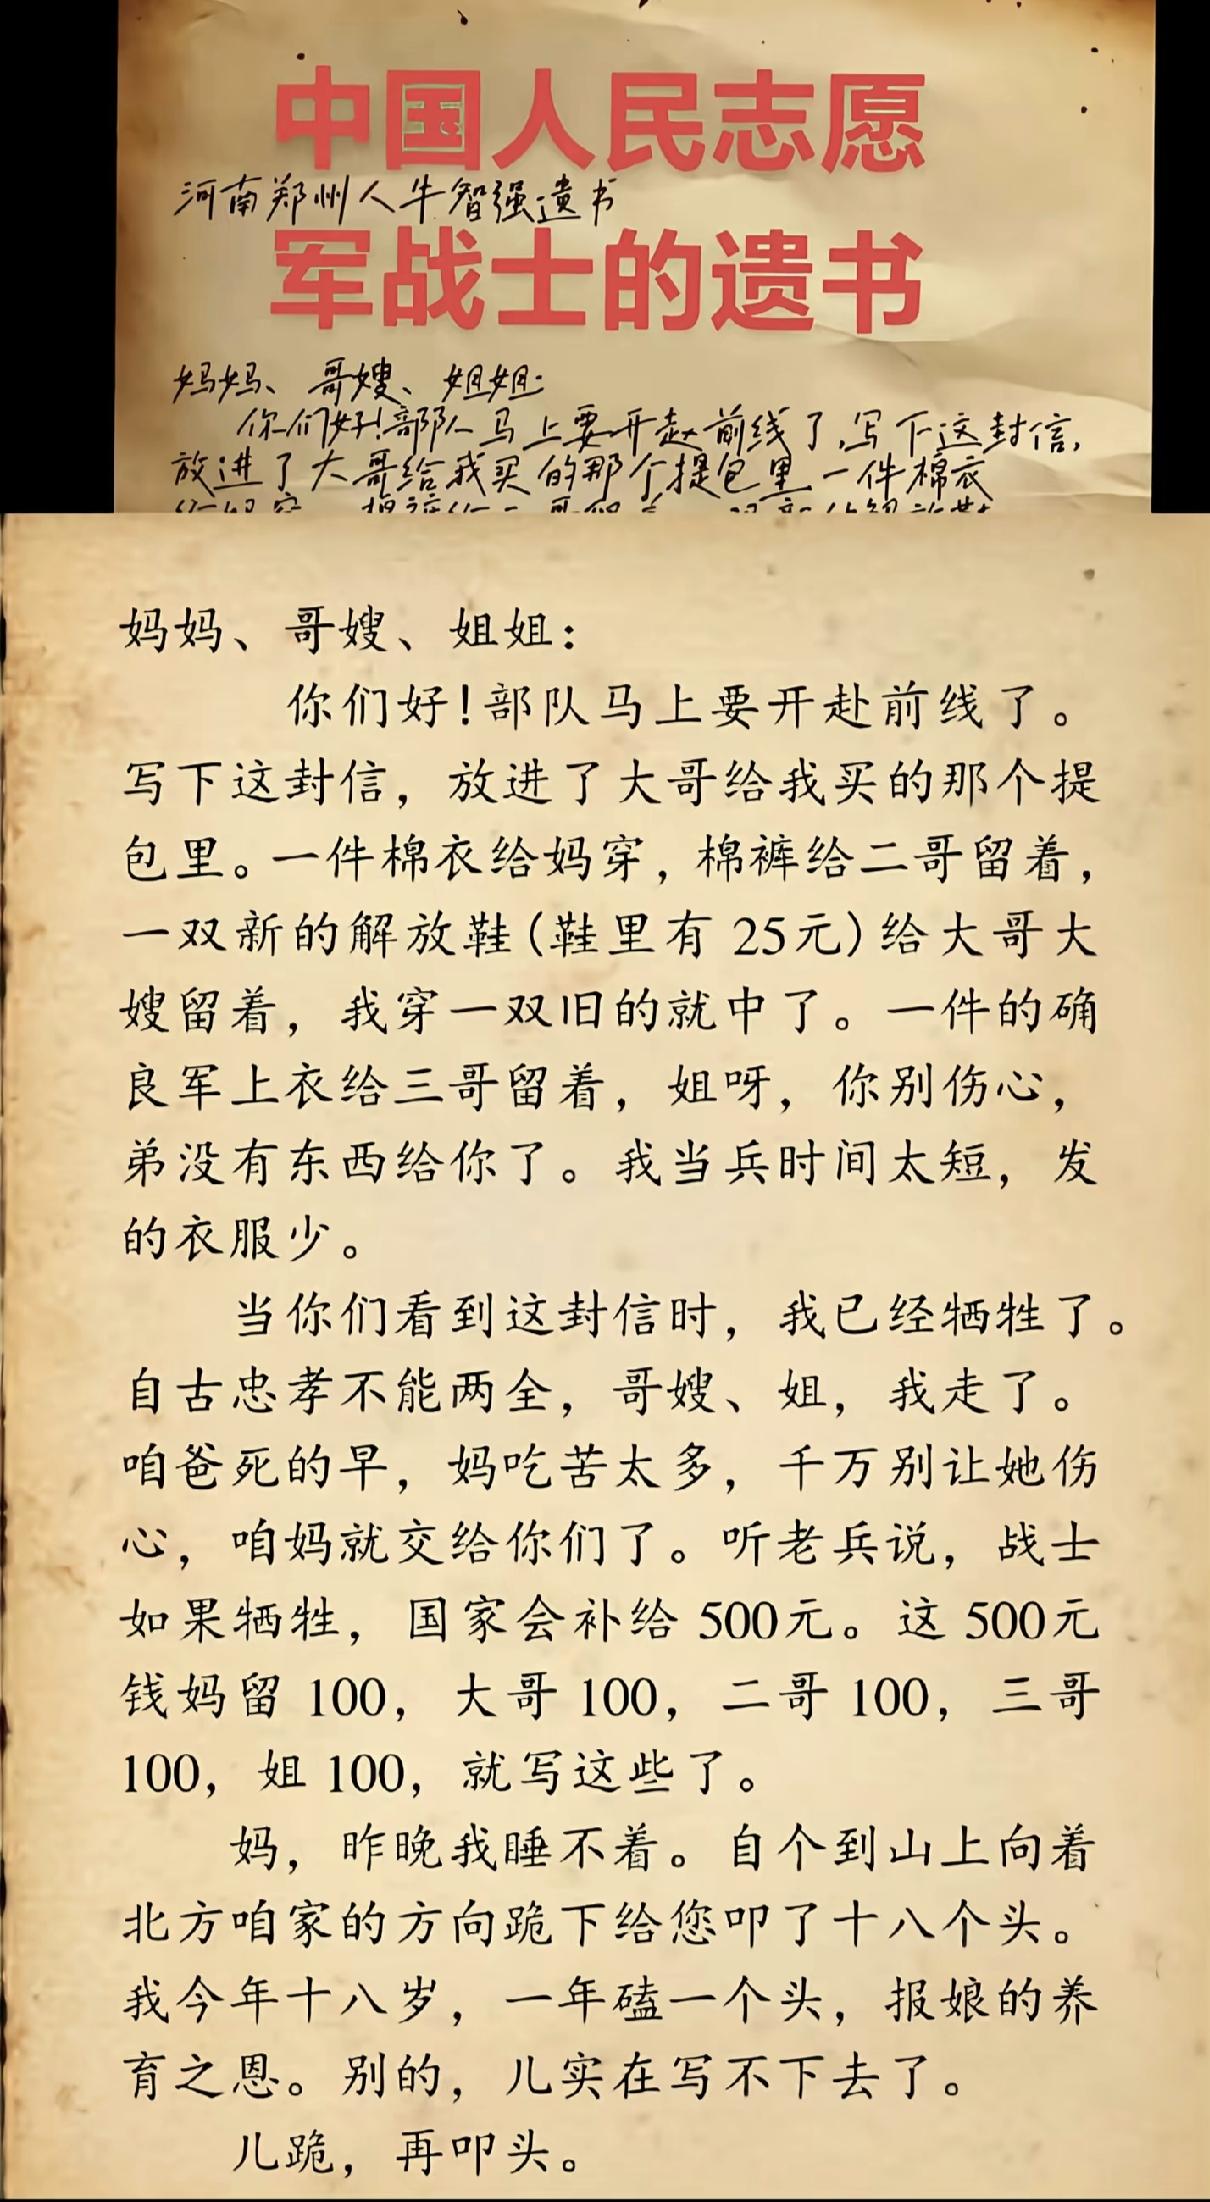 中国人民志愿
河南郑州人牛智强遗书
军战士的遗书
妈妈、哥嫂、姐姐:
你们好!部队马上要开赴前线了,写下这封信,
放进了大哥给我买的那个提包里一件棉衣
妈妈、哥嫂、姐姐:
你们好!部队马上要开赴前线了。
写下这封信，放进了大哥给我买的那个提
包里。一件棉衣给妈穿，棉裤给二哥留着，
一双新的解放鞋(鞋里有 25元)给大哥大
嫂留着，我穿一双旧的就中了。一件的确
良军上衣给三哥留着，姐呀，你别伤心，
弟没有东西给你了。我当兵时间太短，发
的衣服少。
当你们看到这封信时，我已经牺牲了。
自古忠孝不能两全，哥嫂、姐，我走了。
咱爸死的早，妈吃苦太多，千万别让她伤
心，咱妈就交给你们了。听老兵说，战士
如果牺牲，国家会补给 500元。这 500元
钱妈留 100，大哥 100，二哥 100，三哥
100，姐 100，就写这些了。
妈，昨晚我睡不着。自个到山上向着
北方咱家的方向跪下给您叩了十八个头。
我今年十八岁，一年磕一个头，报娘的养
育之恩。别的，儿实在写不下去了。
儿跪，再叩头。